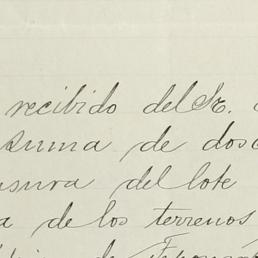 recibido del Sr.
suma de dos
sura del lote
a de los terrenos
de